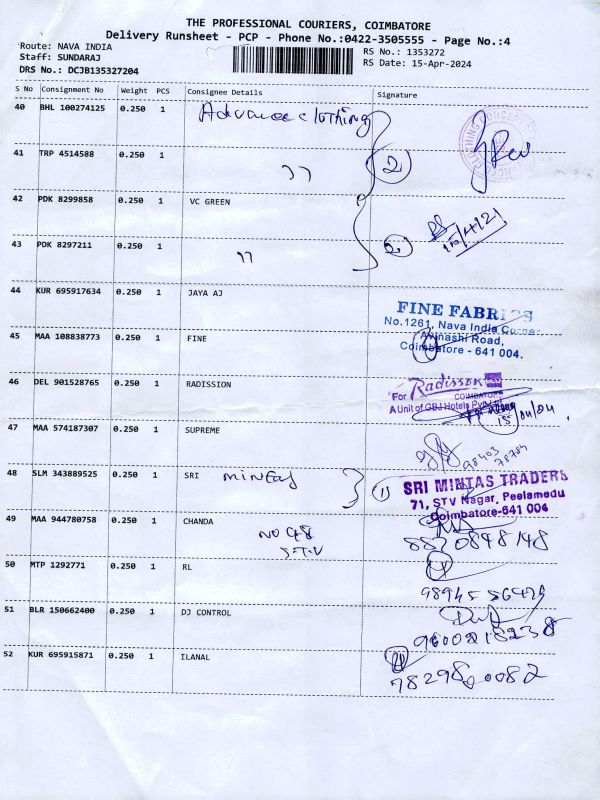 THE PROFESSIONAL COURIERS, COIMBATORE
Delivery Runsheet - PCP - Phone No.:0422-3505555 - Page No.:4
Route: NAVA INDIA
RS No.: 1353272
Staff: SUNDARAJ
RS Date: 15-Apr-2024
DRS No.: DCJB135327204
S No Consignment No Weight PCS Consignee Details Signature
40 BHL 100274125 0.250 1 Advance clothing
41 TRP 4514588 0.250 1 " (2)
42 PDK 8299858 0.250 1 VC GREEN
43 PDK 8297211 0.250 1 " (2)
44 KUR 695917634 0.250 1 JAYA AJ
FINE FABRICS
No.1261, Nava India Corner,
Avinashi Road,
Coimbatore - 641 004.
45 MAA 108838773 0.250 1 FINE
46 DEL 901528765 0.250 1 RADISSION
For Radisson
COIMBATORE
A Unit of GBJ Hotels Pvt Ltd
15/04/04
47 MAA 574187307 0.250 1 SUPREME
98403
78784
48 SLM 343889525 0.250 1 SRI MINTAS (1)
SRI MINTAS TRADERS
71, STV Nagar, Peelamedu
Coimbatore-641 004
49 MAA 944780758 0.250 1 CHANDA
NO 48
S.T.V
8870848148
50 MTP 1292771 0.250 1 RL
51 BLR 150662400 0.250 1 DJ CONTROL
9600218238
52 KUR 695915871 0.250 1 ILANAL
7829820082